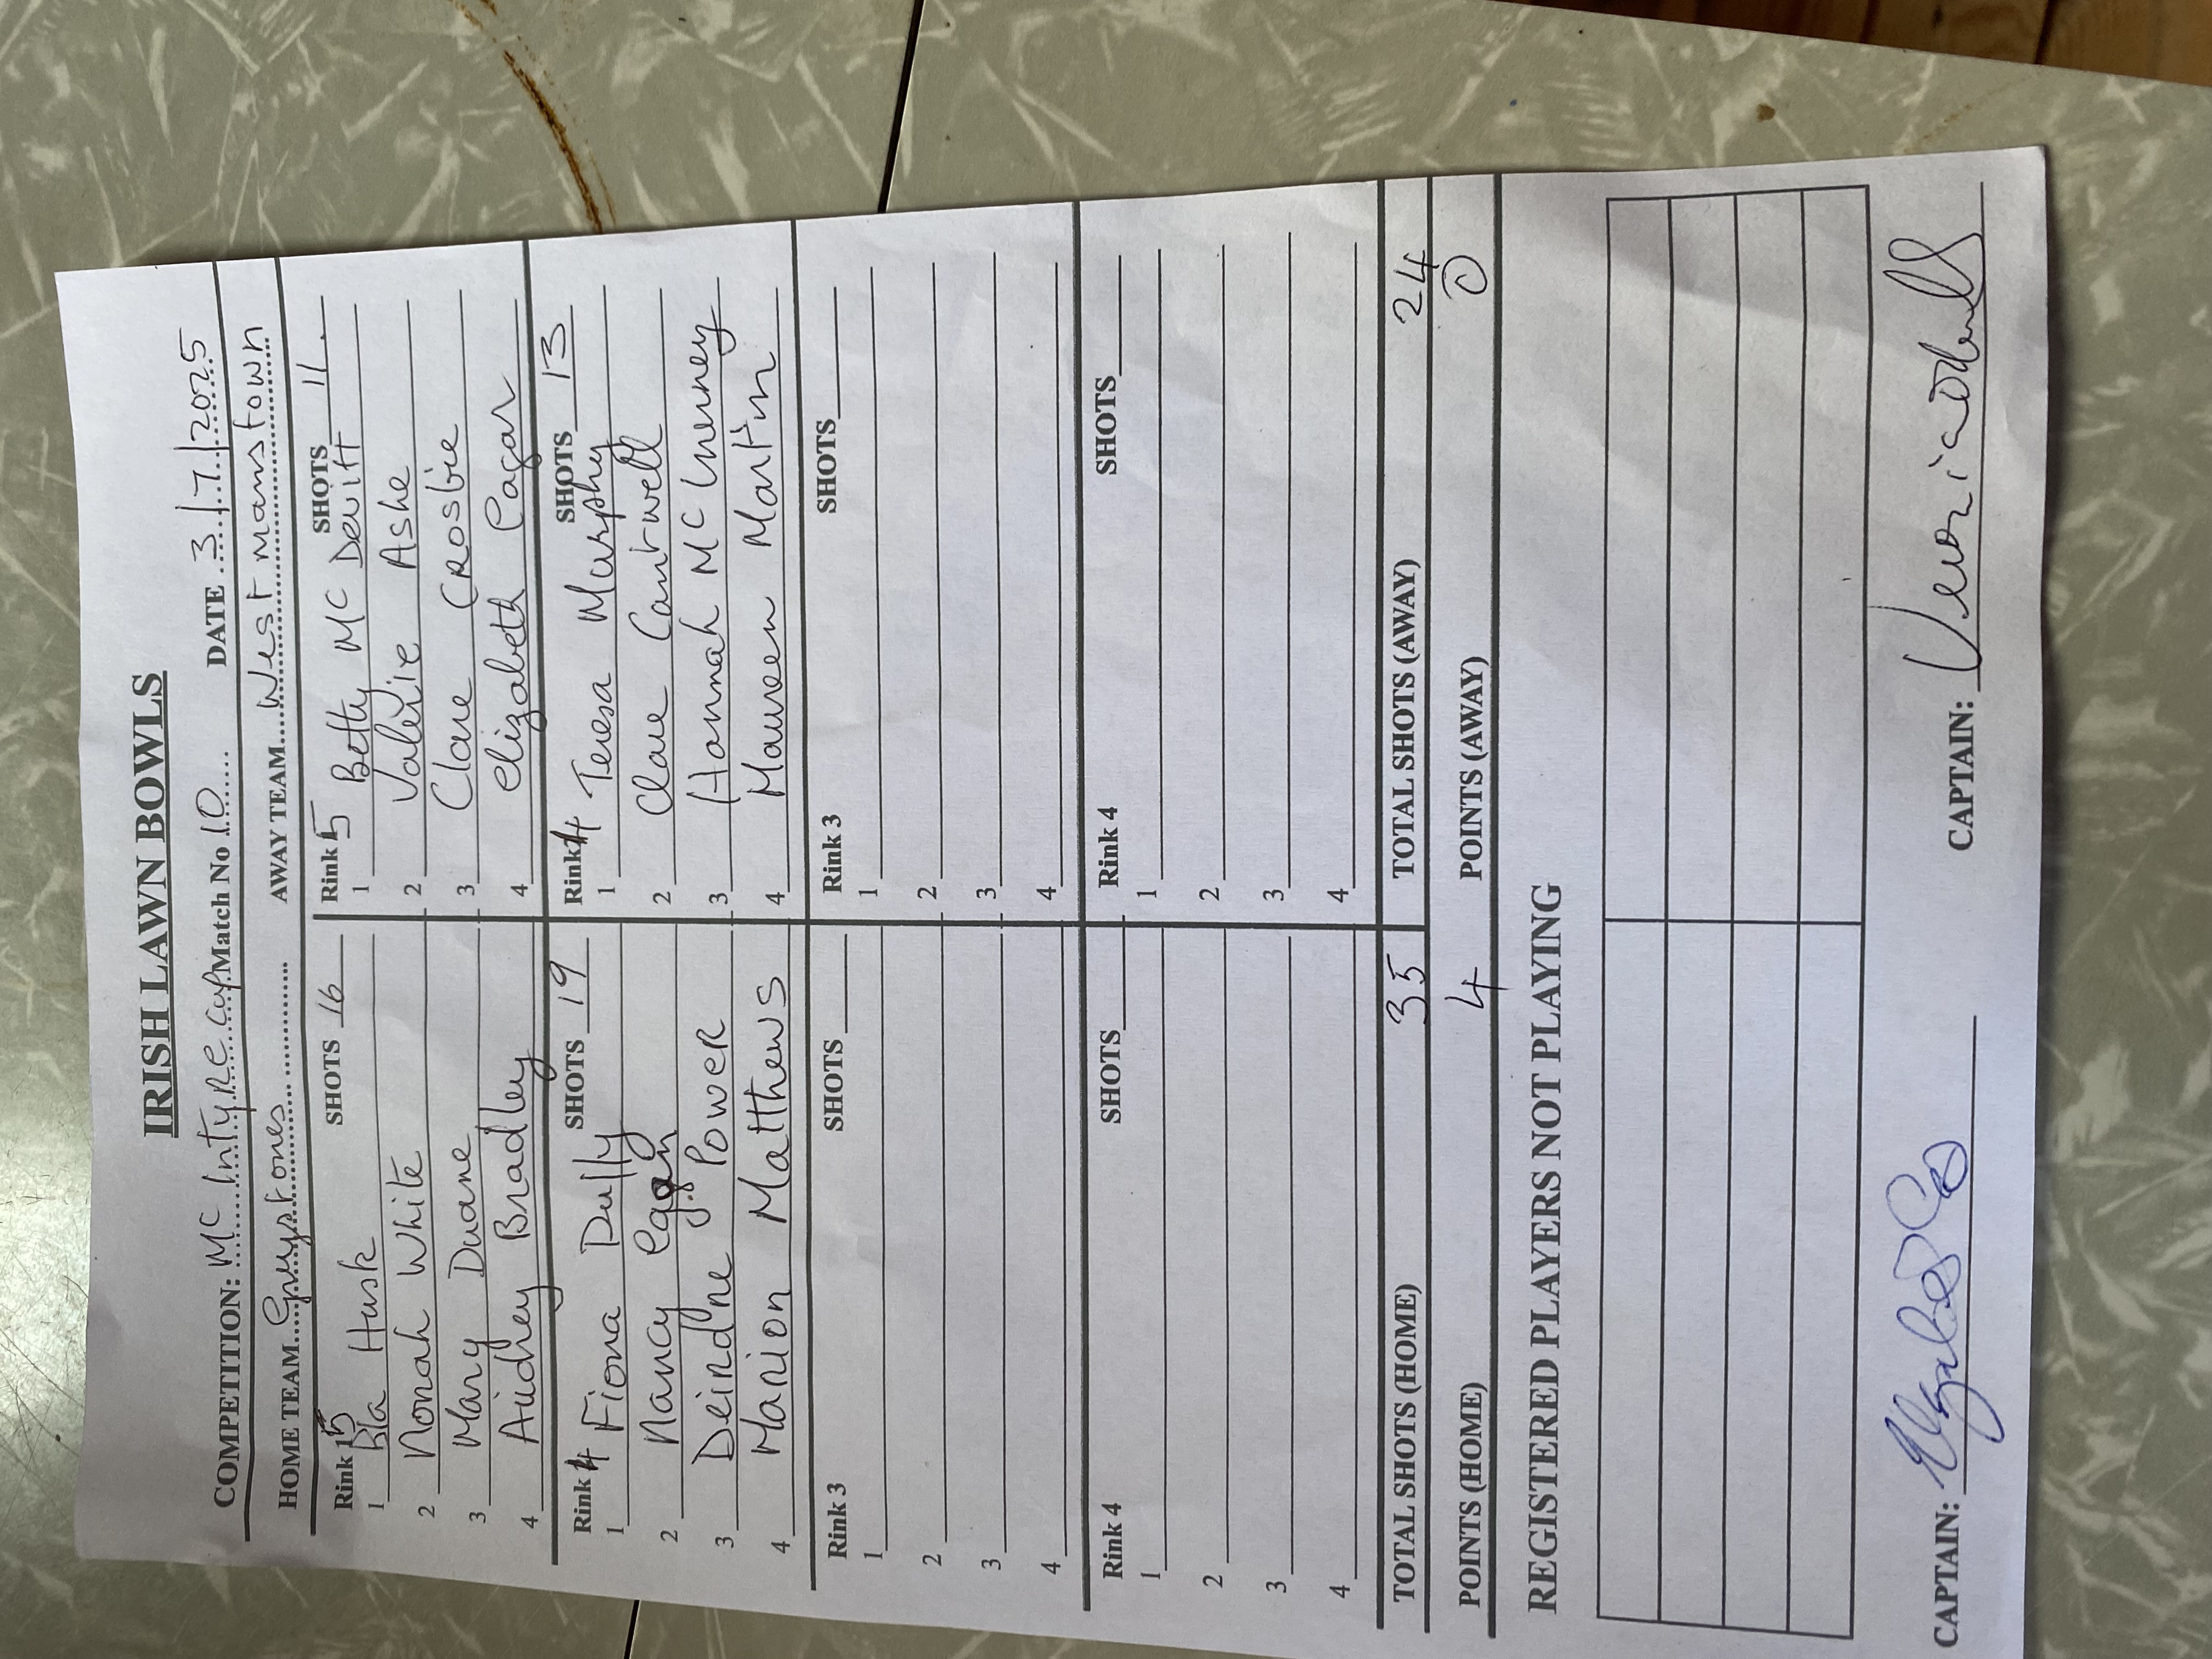 IRISH LAWN BOWLS
COMPETITION: Mc Intyre Cup Match No 10 DATE 3/7/2025
HOME TEAM Greystones AWAY TEAM West manstown
Rink 5 SHOTS 16
1 Ela Husk
2 Norah White
3 Mary Duane
4 Audrey Bradley
Rink 5 SHOTS 11.
1 Betty Mc Devitt
2 Valerie Ashe
3 Clare Crosbie
4 Elizabeth
Rink 4 SHOTS 19
1 Fiona Dully
2 Nancy Egan
3 Deirdre Power
4 Marion Matthews
Rink 4 SHOTS 13
1 Teresa Murphy
2 Clare Cantwell
3 Hannah Mc Inerney
4 Maureen Martin
Rink 3 SHOTS
1
2
3
4
Rink 3 SHOTS
1
2
3
4
Rink 4 SHOTS
1
2
3
4
Rink 4 SHOTS
1
2
3
4
TOTAL SHOTS (HOME) 35 TOTAL SHOTS (AWAY) 24
POINTS (HOME) 4 POINTS (AWAY) 0
REGISTERED PLAYERS NOT PLAYING
CAPTAIN: CAPTAIN: